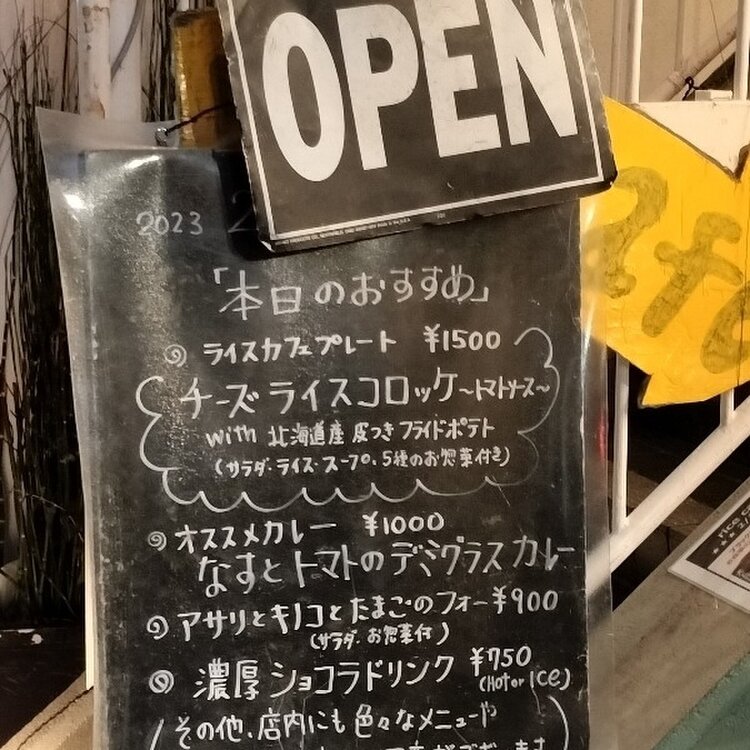 OPEN
2023
「本日のおすすめ」
ライスカフェプレート ¥1500
チーズライスコロッケ〜トマトソース〜
with 北海道産 皮つきフライドポテト
(サラダ・ライス・スープ・5種のお惣菜付き)
オススメカレー ¥1000
なすとトマトのデミグラスカレー
アサリとキノコとたまごのフォー ¥900
(サラダ・お惣菜付)
濃厚ショコラドリンク ¥750
(Hot or ICe)
その他、店内にも色々なメニューや